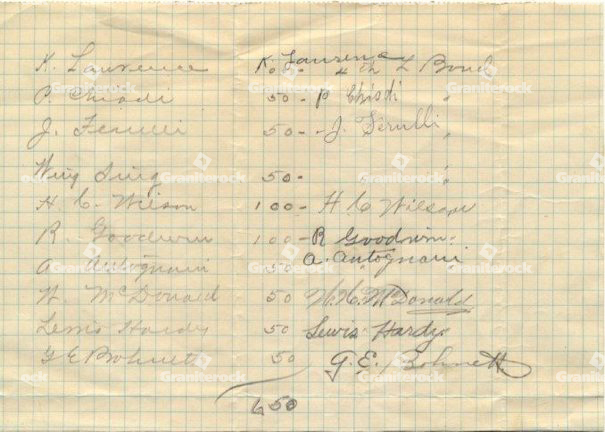 K. Lawrence 100 - K. Lawrence 4th L Bond
P. Chiodi 50 - P Chiodi "
J. Ferulli 50 - J. Ferulli "
Wing Sing 50 - "
H. C. Wilson 100 - H C Wilson
R Goodwin 100 - R Goodwin
A Autognani 50 A. Autognani
W. McDonald 50 McDonald
Lewis Hardy 50 Lewis Hardy
G E Bohnett 50 G. E. Bohnett
650
Graniterock